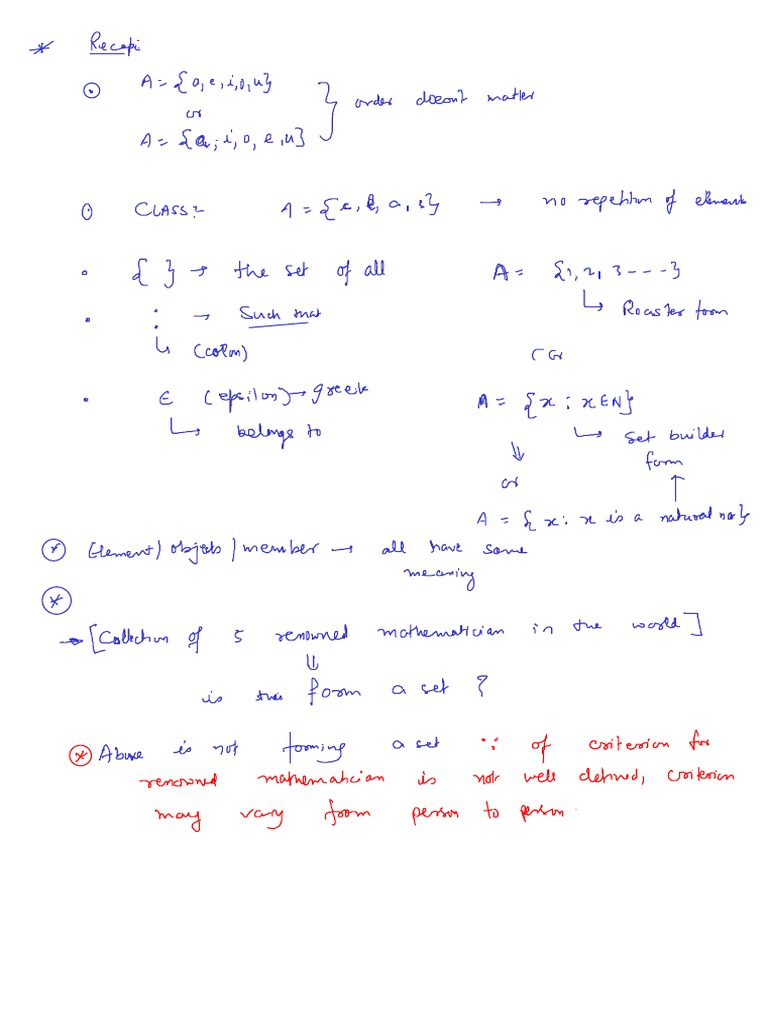 * Recap:
⊙ A = {a, e, i, o, u}
or
A = {a, i, o, e, u}
} order doesn't matter
⊙ CLASS:- A = {c, l, a, s} → no repetition of element
• { } → the set of all
• : → Such that
↳ (colon)
• ∈ (epsilon) → greek
↳ belongs to
A = {1, 2, 3 - - - }
↳ Roaster form
or
A = {x : x ∈ N}
↳ Set builder form
⇓
or
A = {x : x is a natural no}
⊛ Element / objects / member → all have same
meaning
⊛
→ [Collection of 5 renowned mathematician in the world]
⇓
is this form a set ?
⊛ Above is not forming a set ∵ of criterion for
renowned mathematician is not well defined, criterion
may vary from person to person.